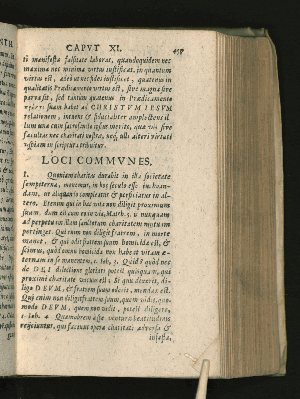 CAPVT XI.
ti manifesta falsitate laborat, quandoquidem nec
maxima nec minima virtus justificat, in quantum
virtus est, adeoque nec fides justificat, quatenus in
qualitatis Prædicamento virtus est, sive magna sive
parva sit, sed tantum quatenus in Prædicamento
suam habet ad CHRISTVM IESVM
relationem, intuens & fiducialiter amplectens il
lum una cum sacrosancto ipsius merito, quæ vis sive
facultas nec charitati justra, neque ulli alteri virtuti
uspiam in scripturis tribuitur.
LOCI COMMVNES.
1. Quoniam charitas durabit in illa societate
sempiterna, maxumam, in hoc seculo esse inchoan-
dam, ut aliquando compleatur & perficiatur in al-
tero. Etenim qui in hac vita non diligit proximum
suum, dum est cum eo in via, Matth. 5. is nunquam
ad perpetuam illam sanctorum charitatem mutuam
pertinget. Qui enim non diligit fratrem, in morte
manet, & qui odit fratrem suum homicida est, &
scimus, quòd omnis homicida non habeat vitam æ-
ternam in se manentem, 1. Ioh. 3. Quid? quòd nec
de DEI dilectione gloriari potest quisquam, qui
proximi charitate vacuus est. Si quis dixerit, di-
ligo DEVM, & fratrem suum oderit, mendax est.
Qui enim non diligit fratrem suum, quem vidit, quo-
modo DEVM, quem non vidit, potest diligere,
1. Ioh. 4. Quamobrem à spe venturæ beatitudinis
reijciuntur, qui faciunt opera charitati adversa &
infesta,